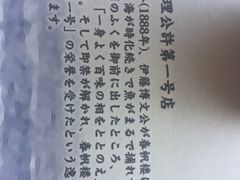 理公許第一号店
(1888年)、伊藤博文公が春帆楼に
海が時化続きで魚がまるで捕れ
のふくを御前に出したところ、
「一身よく百味の相をととのえ
。そして即禁が解かれ、春帆楼
一号」の栄誉を受けたという逸
ます。